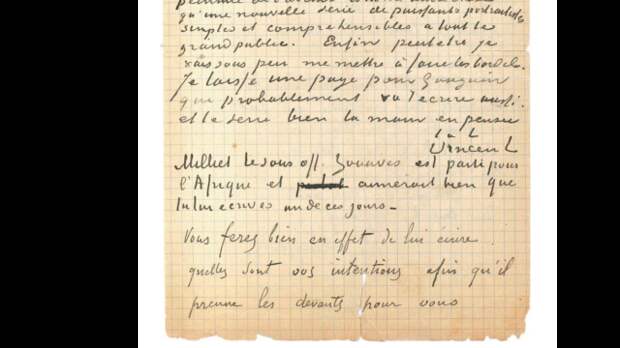 qu'une nouvelle série de puissants portraitistes
simples et compréhensibles à tout le
grand public. Enfin peut etre je
vais sous peu me mettre à faire les bordels.
Je laisse une page pour Gauguin
qui probablement va t'ecrire aussi
et te serre bien la main en pensée
t. à t.
Vincent
Milliet le sous off. zouaves est parti pour
l'Afrique et aimerait bien que
tu lui ecrives un de ces jours —
Vous ferez bien en effet de lui écrire
quelles sont vos intentions afin qu'il
prenne les devants pour vous